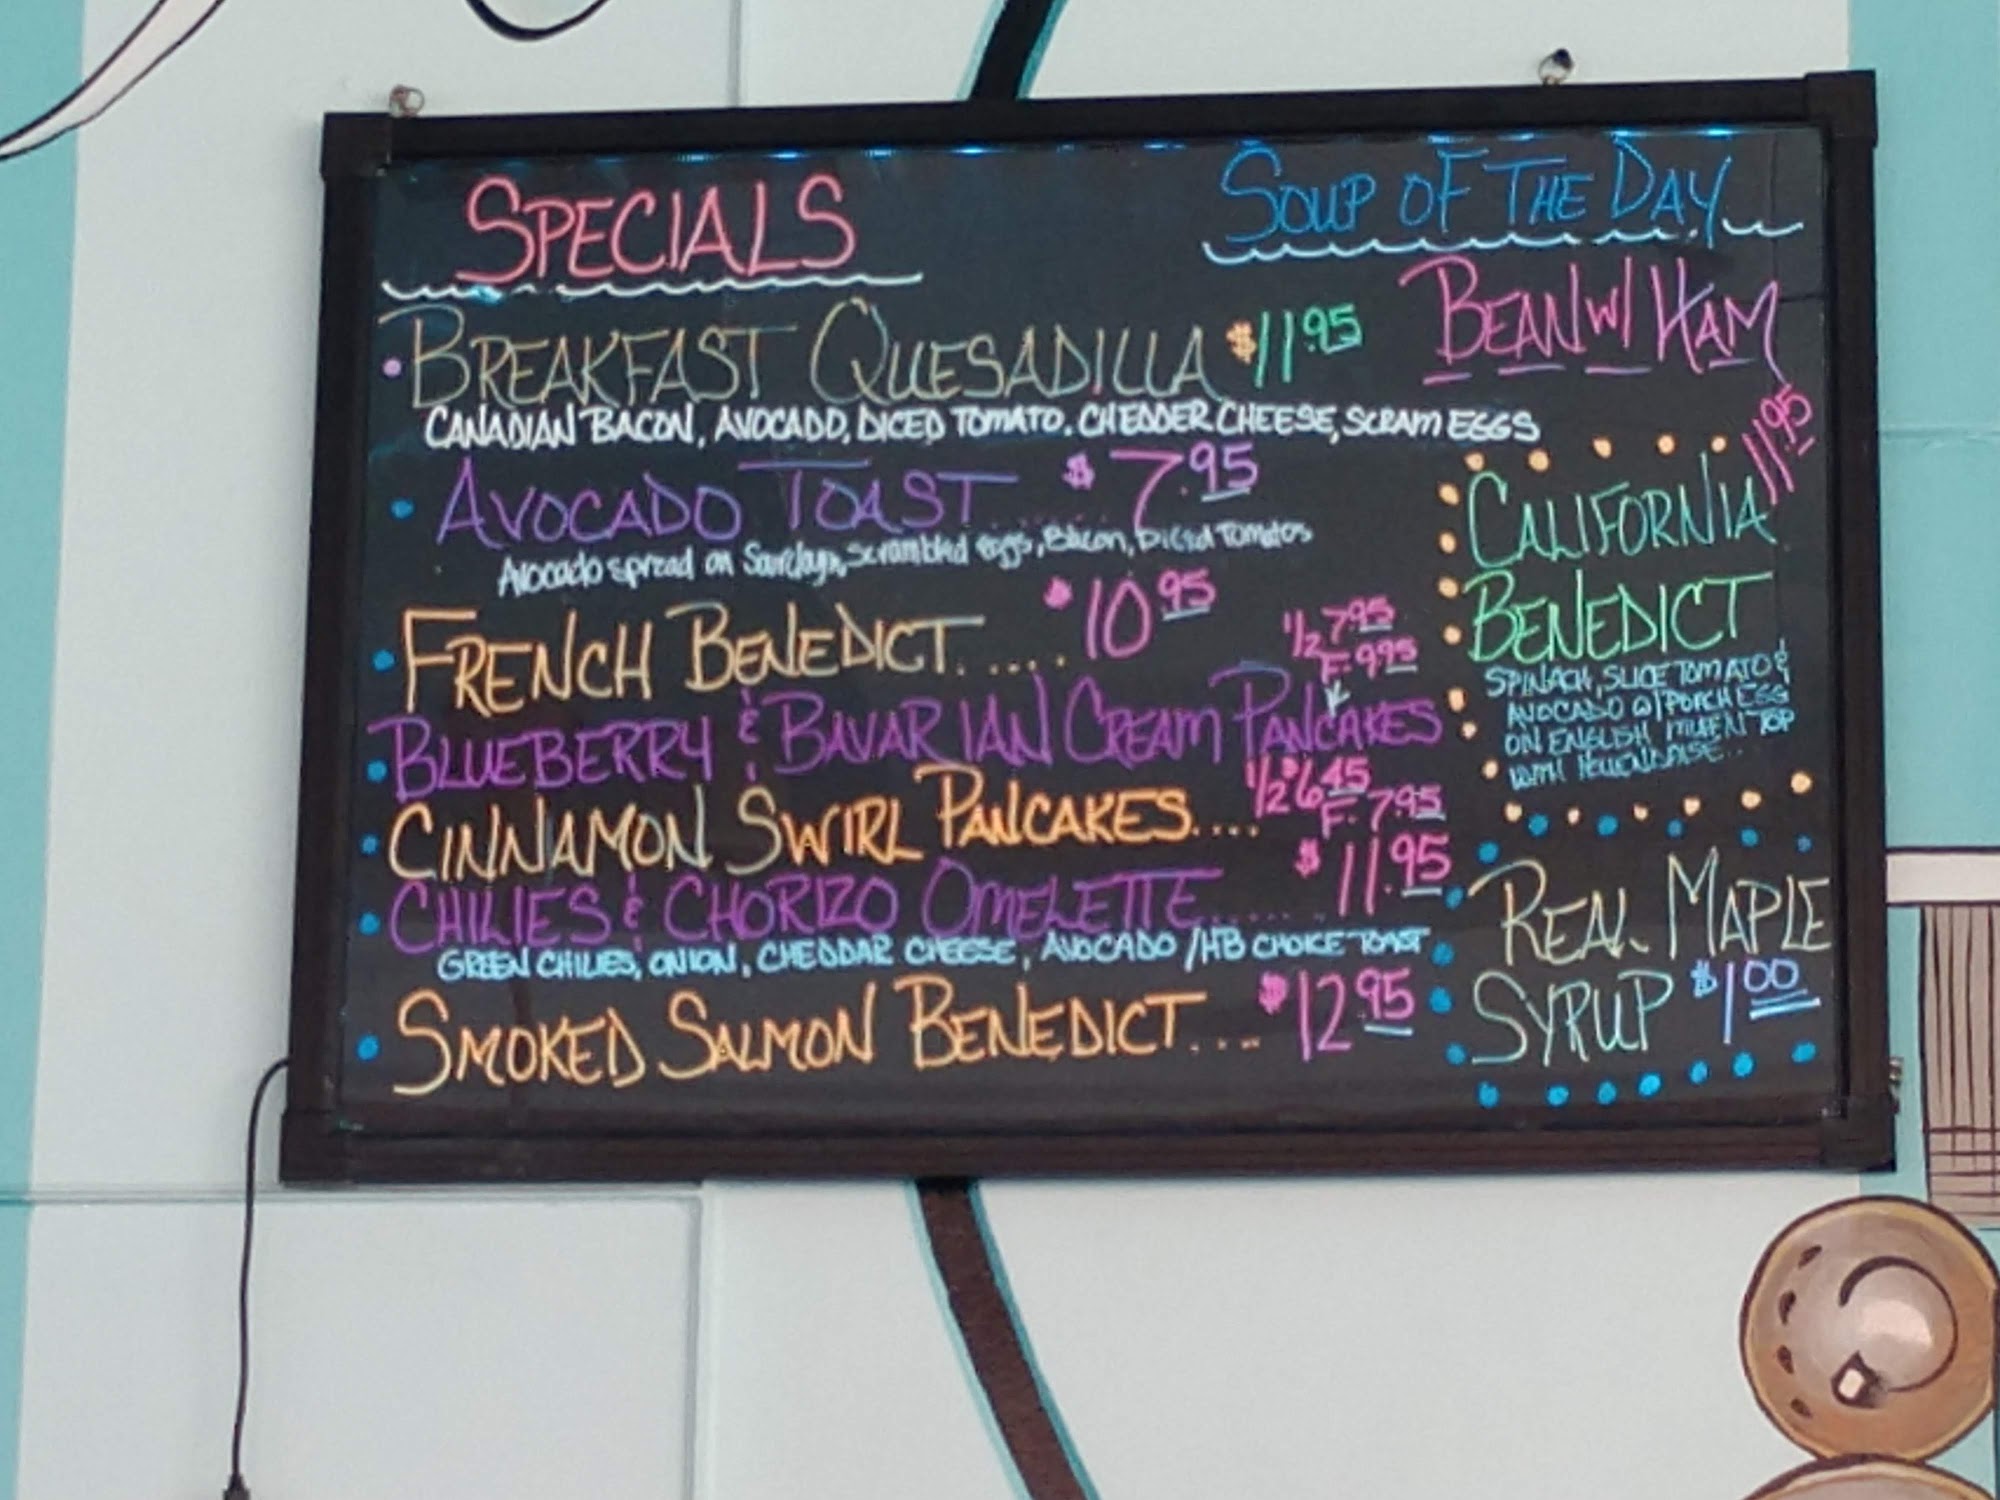 SPECIALS
• BREAKFAST QUESADILLA $11.95
CANADIAN BACON, AVOCADO, DICED TOMATO, CHEDDER CHEESE, SCRAM EGGS
• AVOCADO TOAST ...... $7.95
Avocado spread on scrambled eggs, Bacon, Diced Tomatos
• FRENCH BENEDICT..... $10.95
1/2 7.95
F. 9.95
• BLUEBERRY & BAVARIAN CREAM PANCAKES
• CINNAMON SWIRL PANCAKES.... 1/2 $6.45
F. 7.95
• CHILIES & CHORIZO OMELETTE...... $11.95
GREEN CHILIES, ONION, CHEDDAR CHEESE, AVOCADO /HB CHOICE TOAST
• SMOKED SALMON BENEDICT.... $12.95
SOUP OF THE DAY
BEAN W/ HAM
11.95
CALIFORNIA
BENEDICT
SPINACH, SLICE TOMATO &
AVOCADO W/ POACH EGG
ON ENGLISH TOP
WITH
REAL MAPLE
SYRUP $1.00